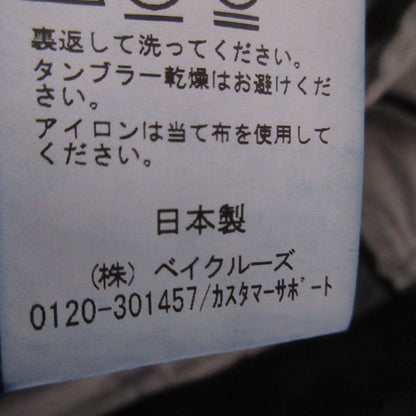 裏返して洗ってください。
タンブラー乾燥はお避けくだ
さい。
アイロンは当て布を使用して
ください。
日本製
(株) ベイクルーズ
0120-301457/ｶｽﾀﾏｰｻﾎﾟｰﾄ